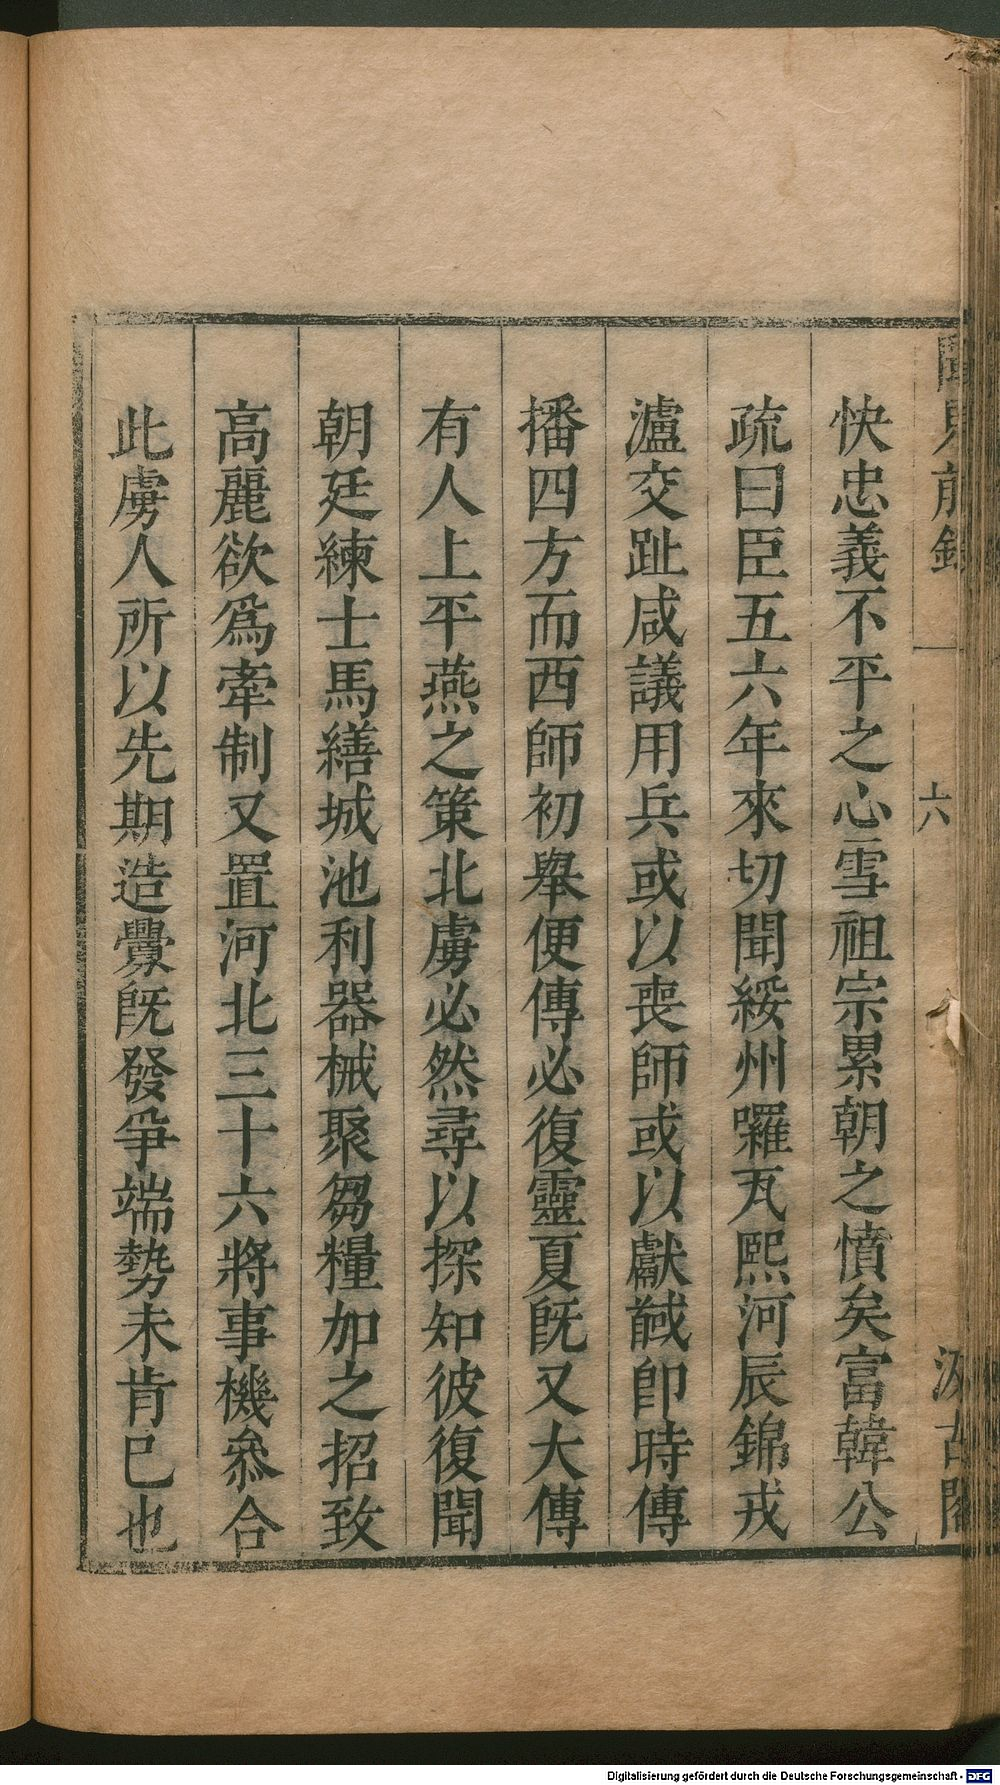 見前錄
一
六
汲古閣
快忠義不平之心雪祖宗累朝之憤矣富韓公
疏曰臣五六年來切聞綏州囉瓦熙河辰錦戎
瀘交趾咸議用兵或以喪師或以獻馘卽時傳
播四方而西師初舉便傳必復靈夏旣又大傳
有人上平燕之策北虜必然尋以探知彼復聞
朝廷練士馬繕城池利器械聚芻糧加之招致
高麗欲爲牽制又置河北三十六將事機叅合
此虜人所以先期造釁旣發爭端勢未肯已也
Digitalisierung gefördert durch die Deutsche Forschungsgemeinschaft - DFG